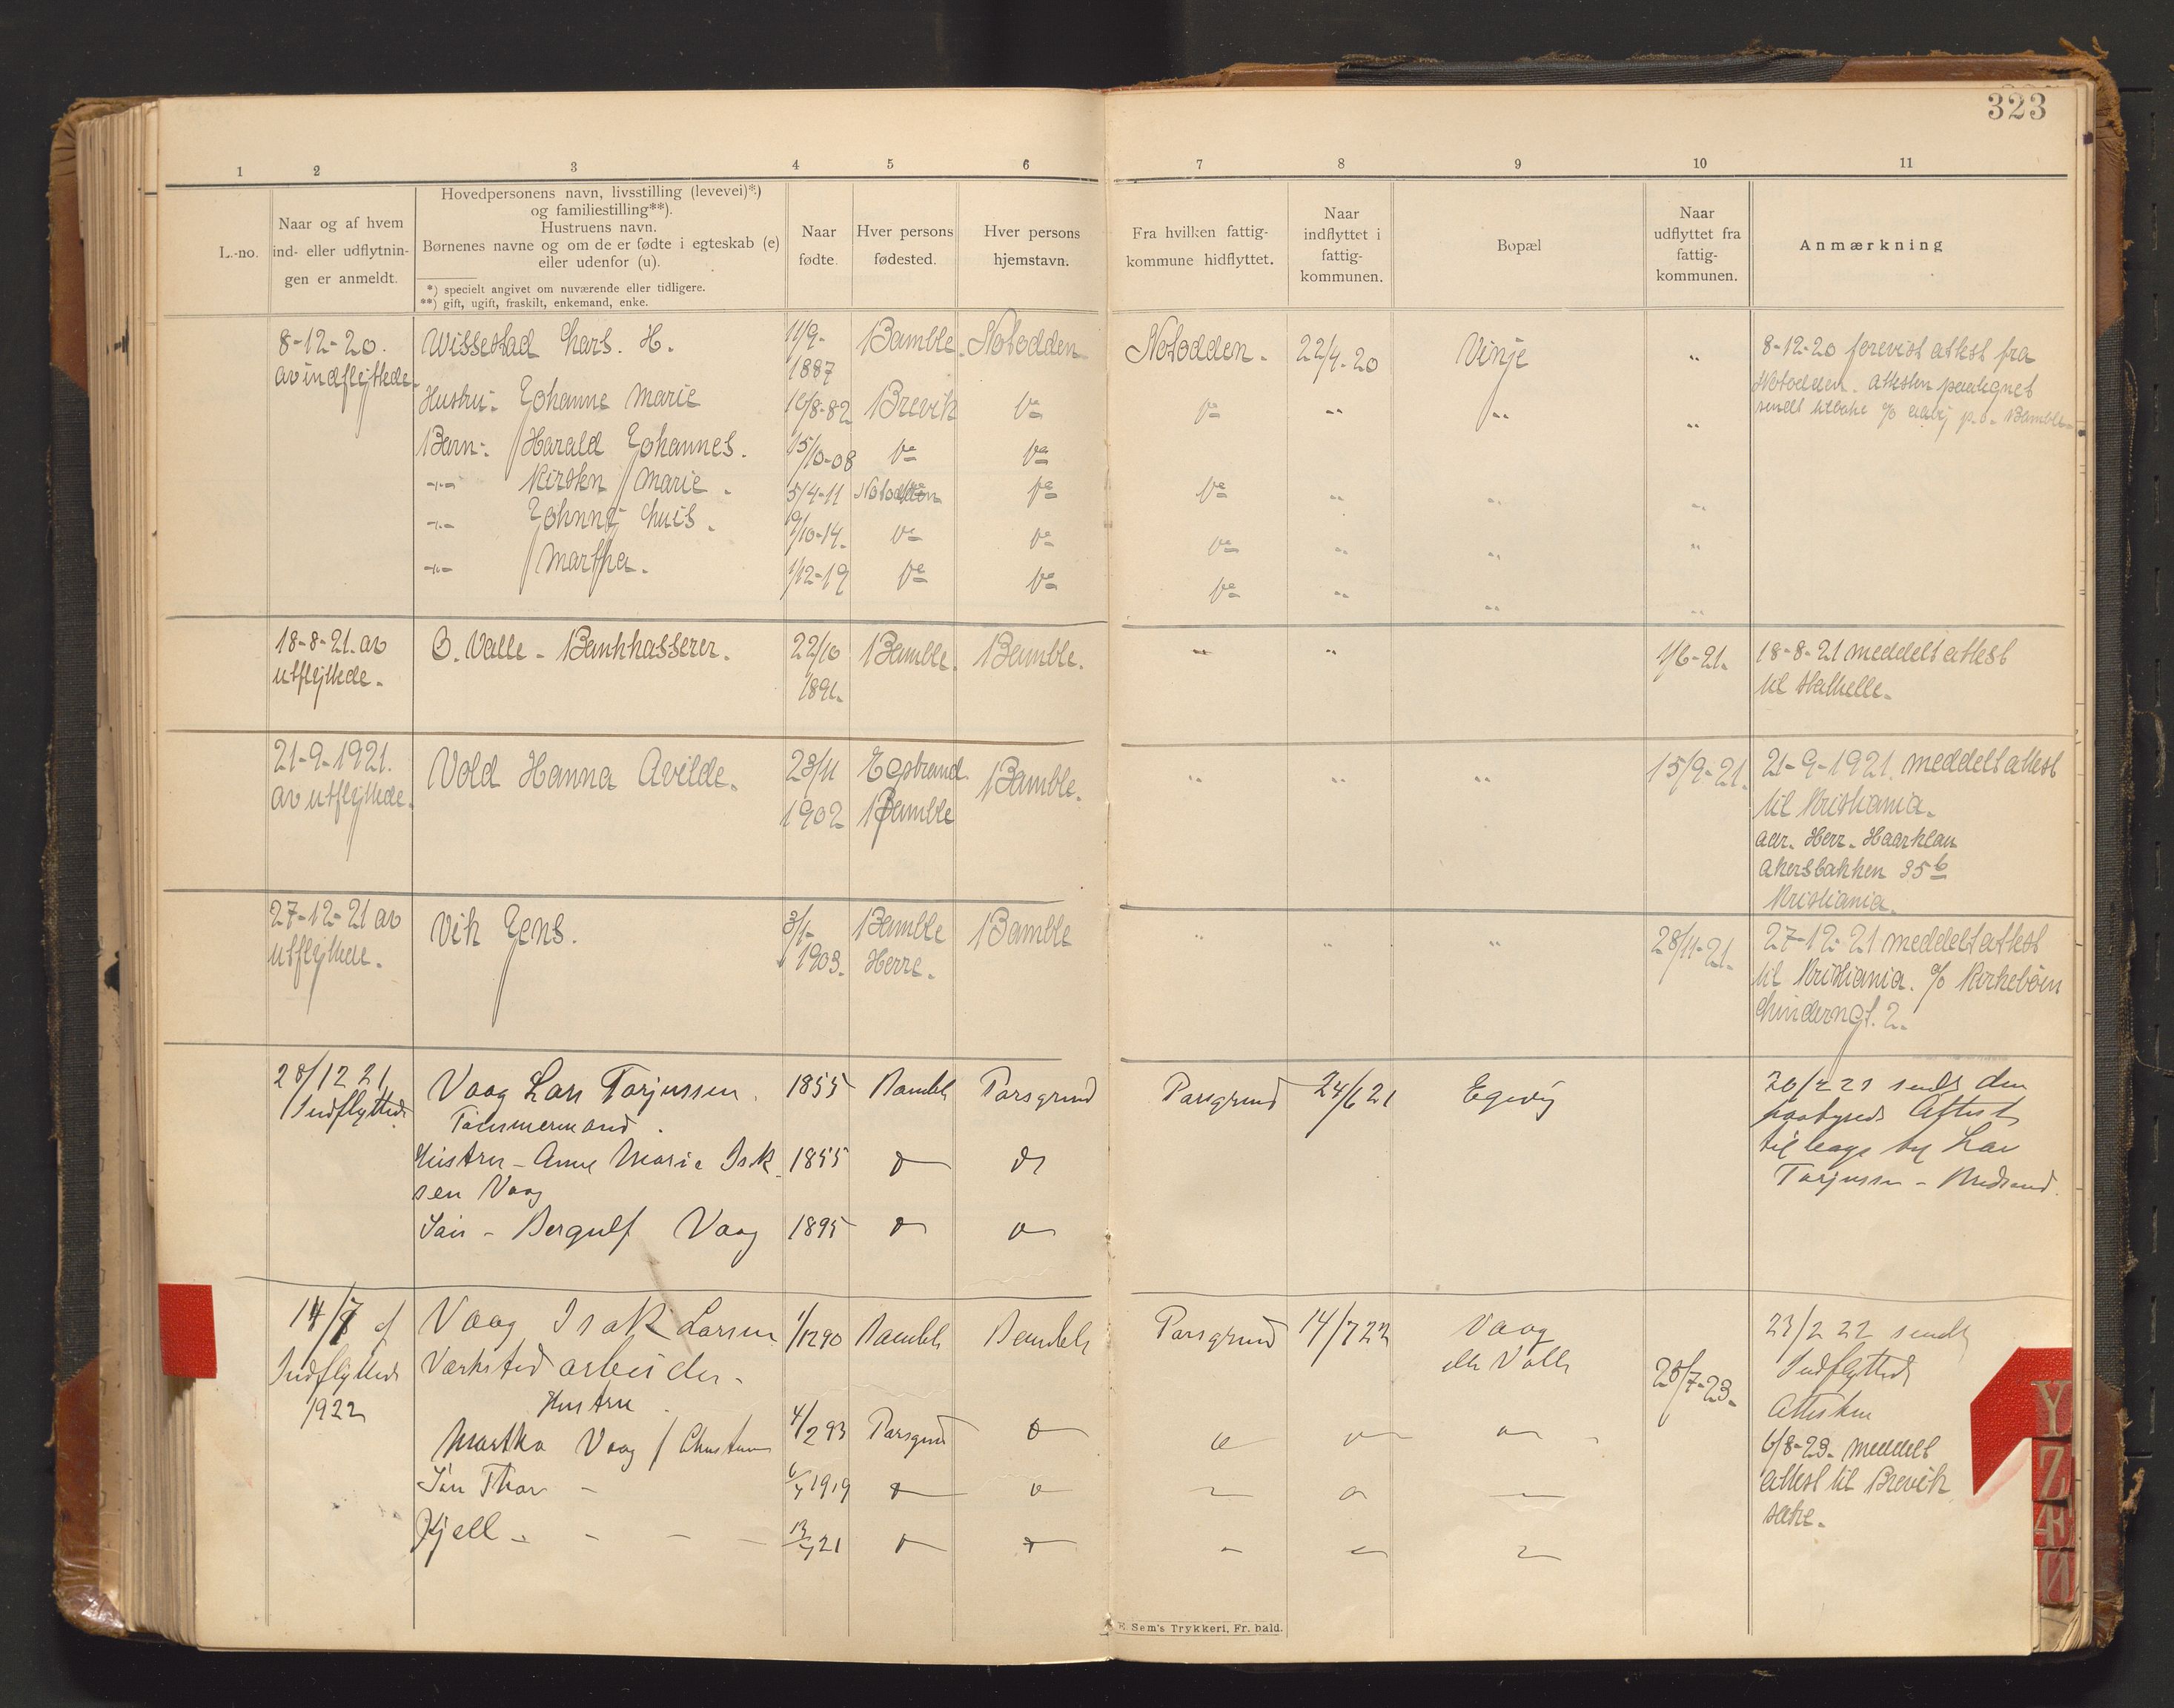 323
1 2 3 4 5 6 7 8 9 10 11
L.-no.
Naar og af hvem
ind- eller udflytnin-
gen er anmeldt.
Hovedpersonens navn, livsstilling (levevei)*)
og familiestilling**).
Hustruens navn.
Børnenes navne og om de er fødte i egteskab (e)
eller udenfor (u).
*) specielt angivet om nuværende eller tidligere.
**) gift, ugift, fraskilt, enkemand, enke.
Naar
fødte.
Hver persons
fødested.
Hver persons
hjemstavn.
Fra hvilken fattig-
kommune hidflyttet.
Naar
indflyttet i
fattig-
kommunen.
Bopæl
Naar
udflyttet fra
fattig-
kommunen.
Anmærkning
8-12-20.
av indflyttede.
Wissestad Lars. H.
11/9-
1887
Bamble.
Notodden
Notodden.
22/4-20
Vinje
"
8-12-20 forevist attest fra
Notodden. Attesten paategnet
sendt tilbake
Hustru: Johanne Marie
16/8-82
Brevik
Do
Do
"
"
"
Barn: Harald Johannes.
15/10-08
Do
Do
-"- Kirsten Marie.
5/4-11
Notodden
Do
Do
"
"
"
-"- Johnny Luis.
9/10-14.
Do
Do
Do
"
"
"
-"- Martha.
1/12-19
Do
Do
Do
"
"
"
18-8-21. av
utflyttede.
O. Valle - Bankkasserer.
22/10
1891.
Bamble.
Bamble.
"
"
1/6-21.
18-8-21 meddelt attest
til Stathelle.
21-9-1921.
av utflyttede.
Vold Hanna Avilde.
23/11
1902
Egstrand
Bamble
Bamble.
"
"
"
15/9-21.
21-9-1921. meddelt attest
til Kristiania.
adr. Herr. Haarklau
Akersbakken 35 b
Kristiania.
27-12-21 av
utflyttede.
Vik Jens.
3/1-
1903.
Bamble
Herre.
Bamble
"
"
"
28/11-21.
27-12-21 meddelt attest
til Kristiania. c/o Kirkebøen
Linderngt. 2.
28/12 21
Indflyttede
Vaag Lars Torjussen.
Tømmermand.
1855
Bamble
Porsgrund
Porsgrund
24/6 21
sendt den
Attest
tilbage
Torjussen -
Hustru - Anne Marie Isak
sen Vaag
1855
Søn - Bergulf Vaag
1895
14/7 af
Indflyttede
1922
Vaag Isak Larsen
Værksted arbeider -
1/12 90
Bamble
Bamble
Porsgrund
14/7 22
Vaag
eller Valle
25/7-23.
23/2 22 sendt
Indflyttede
Attesten
6/8-23. meddelt
attest til Brevik
Hustru.
Martha Vaag f
4/2 93
Porsgrund
Søn Thor -
1919
Kjell - - - -
21
Y
Z
Æ
Ø
E. Sem's Trykkeri, Fr. hald.